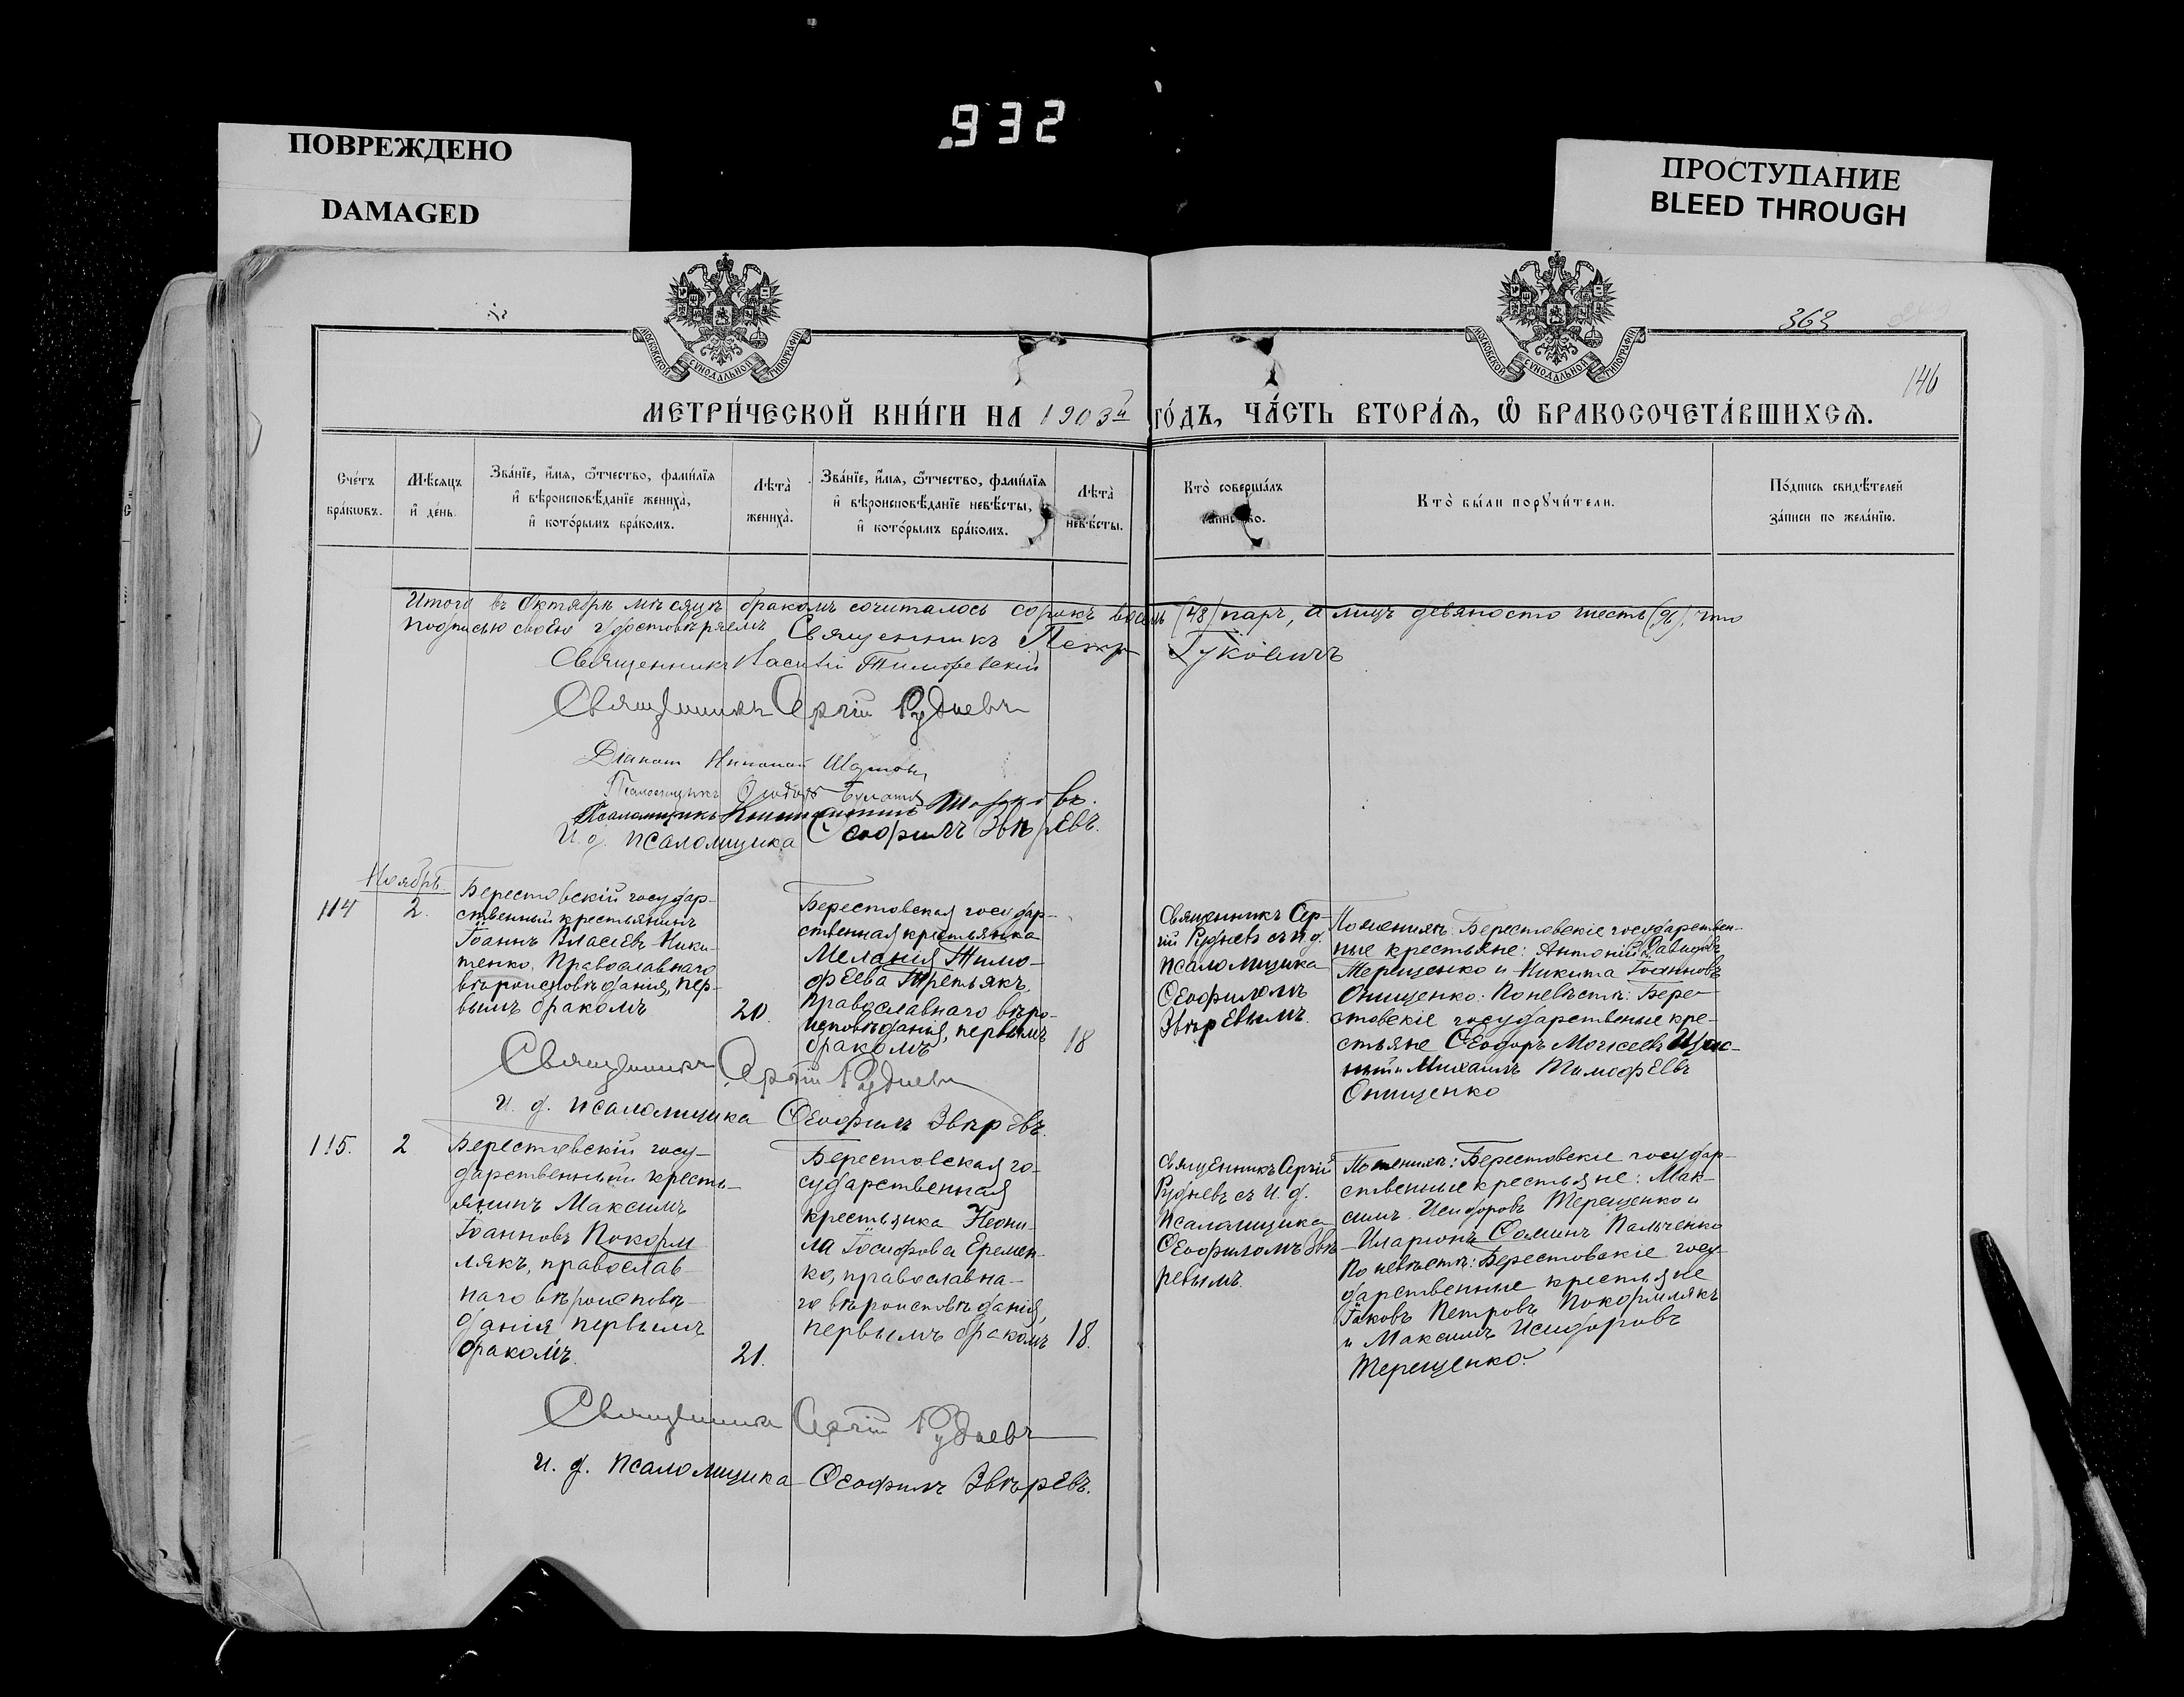 932
ПОВРЕЖДЕНО
DAMAGED
ПРОСТУПАНИЕ
BLEED THROUGH
МОСКОВСКОЙ СѴНОДАЛЬНОЙ ТИПОГРАФІИ
МОСКОВСКОЙ СѴНОДАЛЬНОЙ ТИПОГРАФІИ
363
146
МЕТРИ́ЧЕСКОЙ КНИ́ГИ НА 1903й ГО́ДЪ, ЧА́СТЬ ВТОРА́Я, Ѽ БРАКОСОЧЕТА́ВШИХСЯ.
Сче́тъ
бра́кѡвъ.
Мѣ́сяцъ
и҆ де́нь.
Зва́нїе, и҆́мя, ѻ҆́тчество, фами́лїя
и҆ вѣроисповѣ́данїе жениха̀,
и҆ кото́рымъ бра́комъ.
Лѣта̀
жениха̀.
Зва́нїе, и҆́мя, ѻ҆́тчество, фами́лїя
и҆ вѣроисповѣ́данїе невѣ́сты,
и҆ кото́рымъ бра́комъ.
Лѣта̀
невѣ́сты.
Кто̀ соверша́лъ
таинство.
Кто̀ бы́ли порꙋчи́тели.
По́дпись свидѣ́телей
за́писи по жела́нїю.
Итого въ Октябрѣ мѣсяцѣ бракомъ сочиталось сорокъ восемь (48) паръ, а лицъ девяносто шесть (96), что
подписью своею удостовѣряемъ Священникъ Петръ
Священникъ Василій Тимофевскій
Священникъ Сергій Рудневъ
Діаконъ Николай
Псаломщикъ Ѳеодоръ
Псаломщикъ
И. д. псаломщика Ѳеофилъ Звѣревъ.
Ноябрь.
114
2.
Берестовскій государ-
ственный крестьянинъ
Іоаннъ Власіевъ Ники-
тенко, Православнаго
вѣроисповѣданія, пер-
вымъ бракомъ
20.
Берестовская государ-
ственная крестьянка
Меланія Тимо-
феева Третьякъ,
Православнаго вѣро-
исповѣданія, первымъ
бракомъ
18
Священникъ Сер-
гій Рудневъ съ и. д.
псаломщика
Ѳеофиломъ
Звѣревымъ.
По женихѣ: Берестовскіе государствен-
ные крестьяне: Антоній Давидовъ
Терещенко и Никита Іоанновъ
Онищенко: По невѣстѣ: Бере-
стовскіе государственные кре-
стьяне Ѳеодоръ Моисеевъ
и Михаилъ Тимофеевъ
Онищенко
Священникъ Сергій Рудневъ
и. д. псаломщика Ѳеофилъ Звѣревъ.
115.
2
Берестовскій госу-
дарственный кресть-
янинъ Максимъ
Іоанновъ Покорм
лякъ, православ-
наго вѣроисповѣ-
данія первымъ
бракомъ.
21.
Берестовская го-
сударственная
крестьянка Неони-
ла Іосифова Еремен-
ко, православна-
го вѣроисповѣданія,
первымъ бракомъ
18.
Священникъ Сергій
Рудневъ съ и. д.
псаломщика
Ѳеофиломъ Звѣ-
ревымъ.
По женихѣ: Берестовскіе государ-
ственные крестьяне: Мак-
симъ Исидоровъ Терещенко и
Иларіонъ Саминъ Пальченко
По невѣстѣ: Берестовскіе госу-
дарственные крестьяне
Іаковъ Петровъ Покормлякъ
и Максимъ Исидоровъ
Терещенко.
Священникъ Сергій Рудневъ
и. д. псаломщика Ѳеофилъ Звѣревъ.